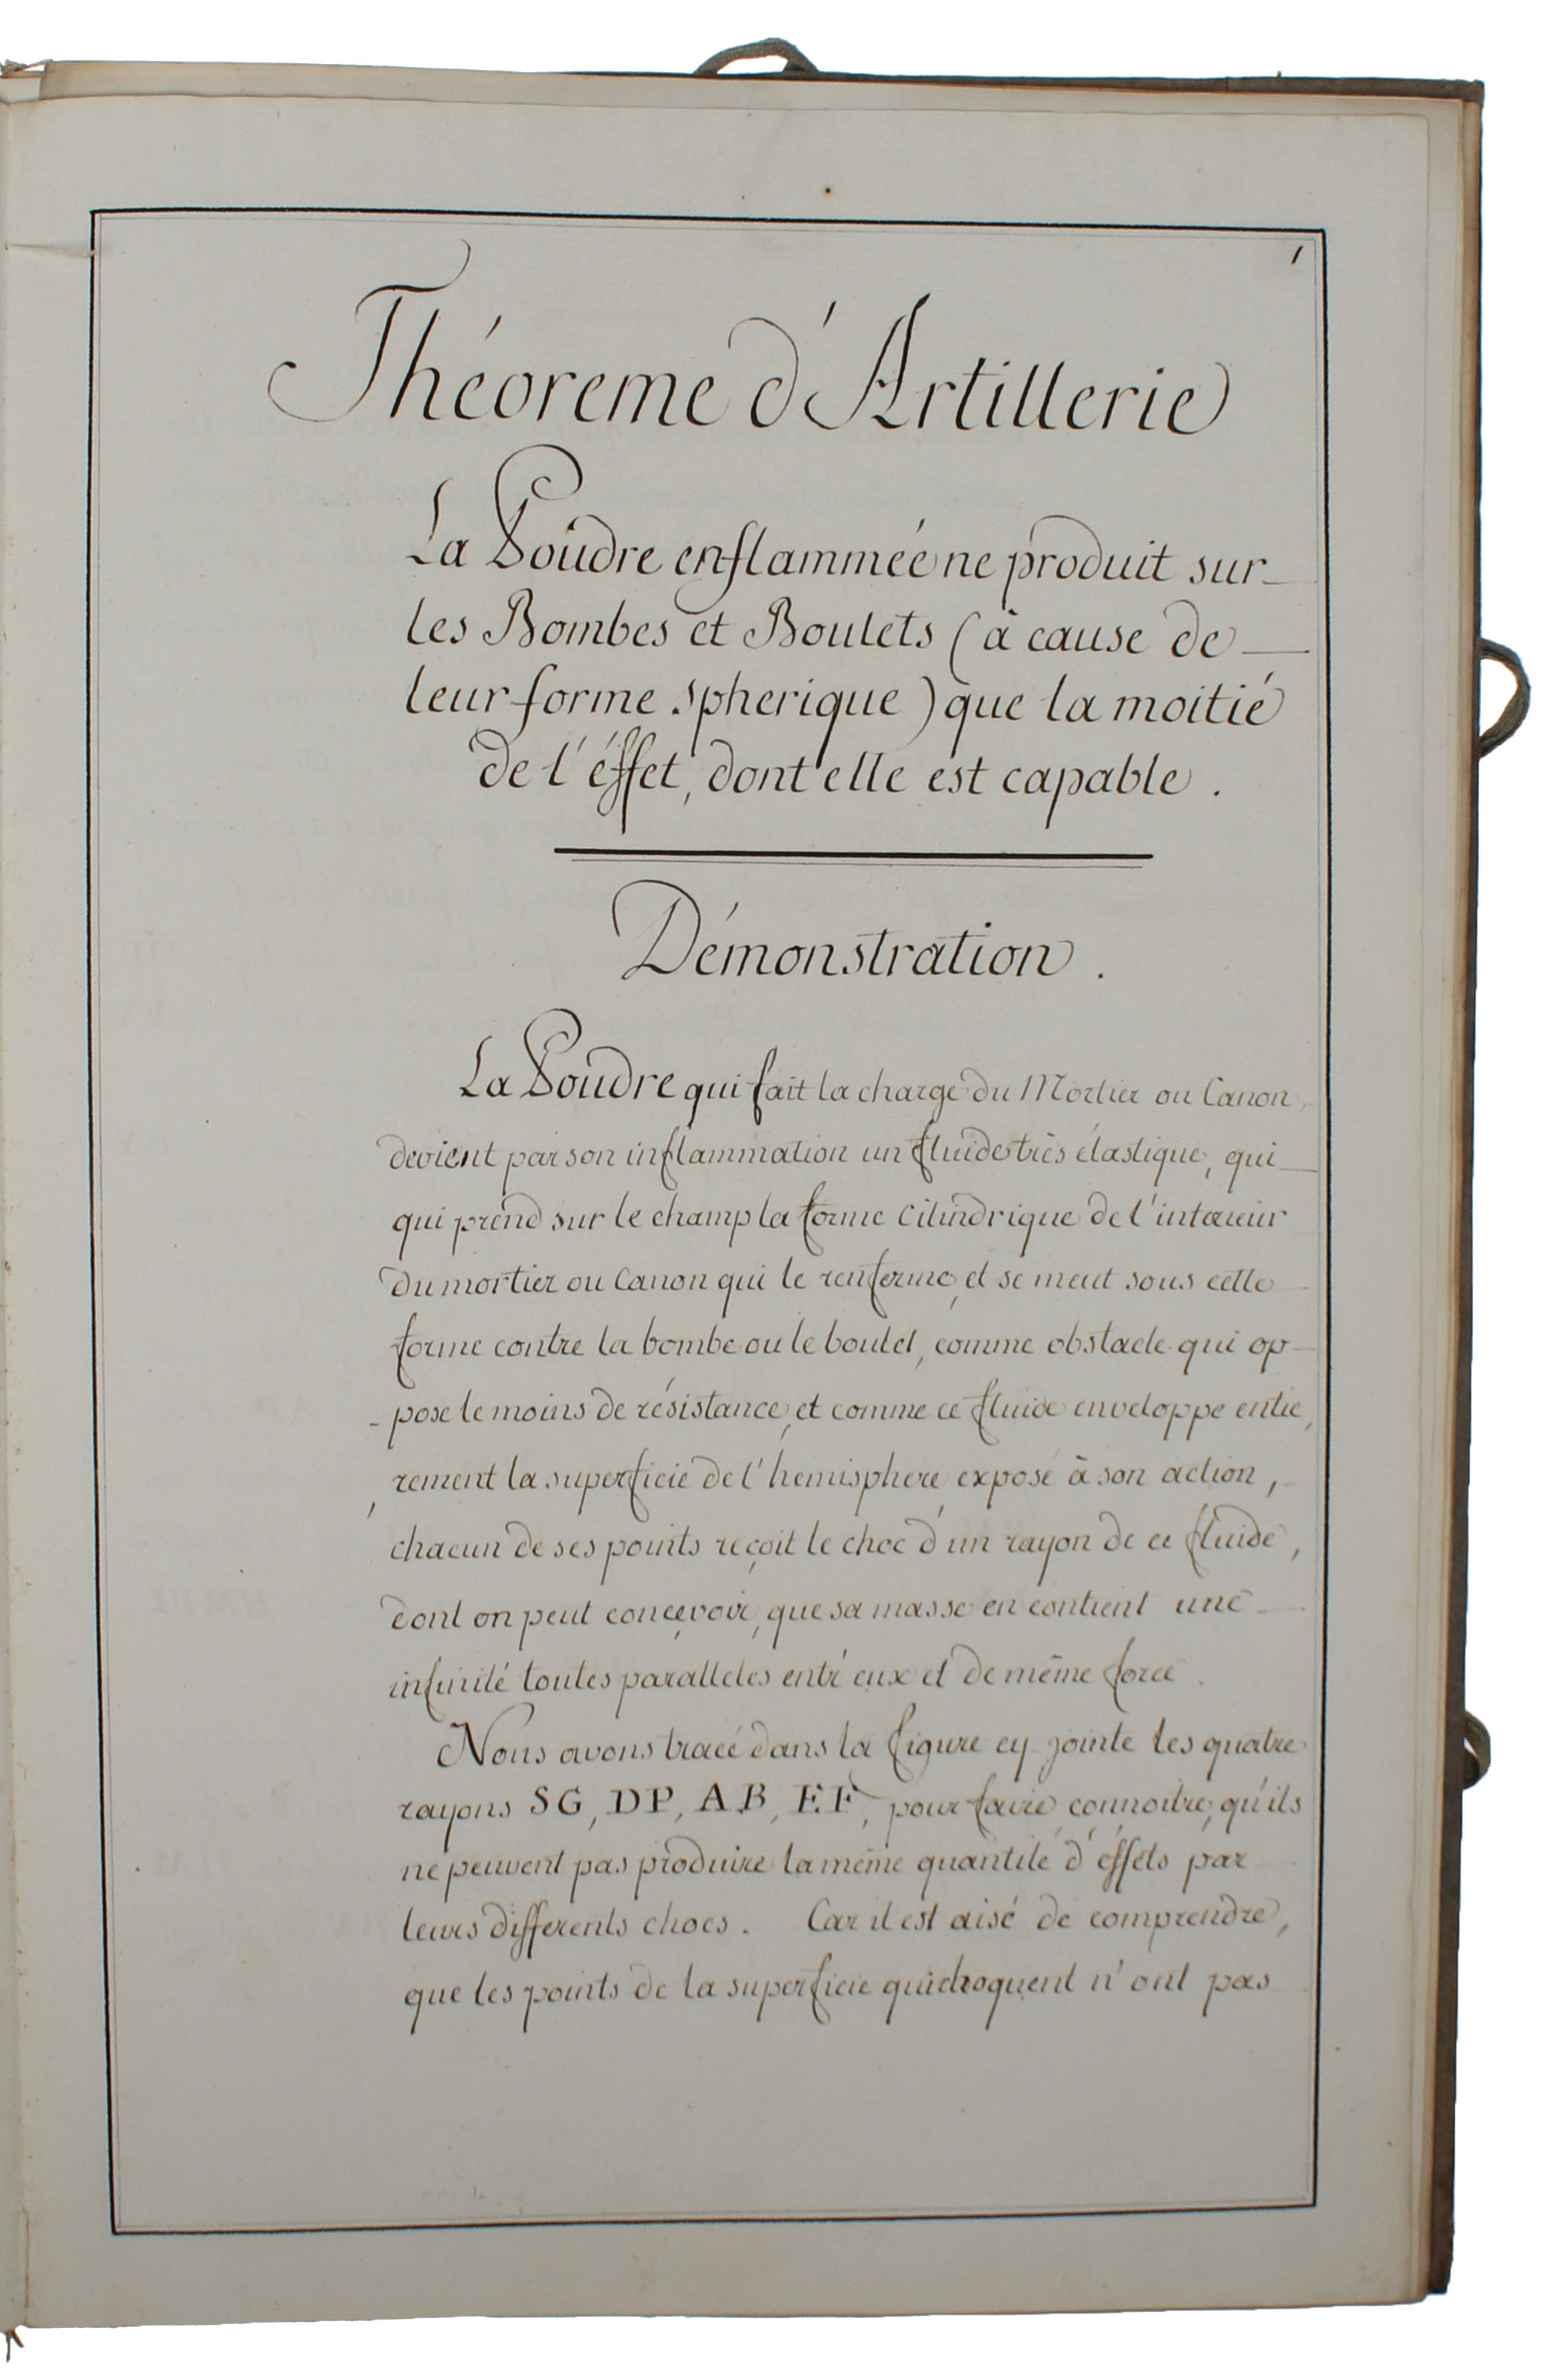 1
Théoreme d'Artillerie
La Poudre enflammée ne produit sur
les Bombes et Boulets (à cause de
leur forme spherique) que la moitié
de l'éffet, dont elle est capable.
Démonstration.
La Poudre qui fait la charge du Mortier ou Canon,
devient par son inflammation un fluide très élastique, qui
qui prend sur le champ la forme Cilindrique de l'interieur
du mortier ou Canon qui le renferme, et se meut sous cette
forme contre la bombe ou le boulet, comme obstacle qui op-
-pose le moins de résistance, et comme ce fluide enveloppe entie,
,rement la superficie de l'hémisphere exposé à son action,
chacun de ses points reçoit le choc d'un rayon de ce fluide,
dont on peut conçevoir, que sa masse en contient une
infinité toutes paralleles entr'eux et de même force.
Nous avons tracé dans la figure cy jointe les quatre
rayons SG, DP, AB, EF, pour faire connoitre, qu'ils
ne peuvent pas produire la même quantité d'éffets par
leurs differents chocs. Car il est aisé de comprendre,
que les points de la superficie qui choquent n'ont pas